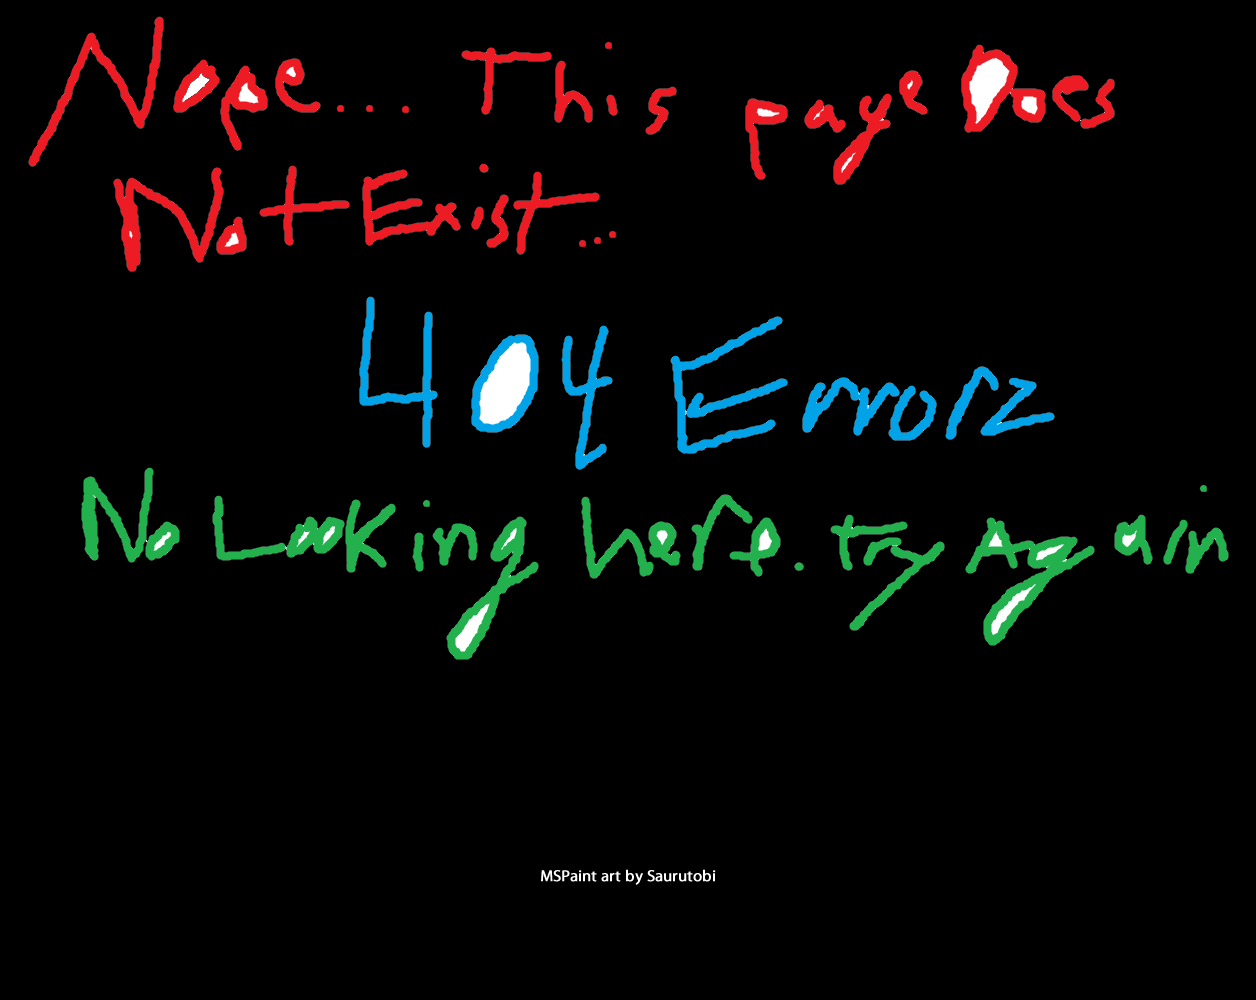 Nope... This page Does
Not Exist...
404 Errorz
No Looking here. try Again
MSPaint art by Saurutobi